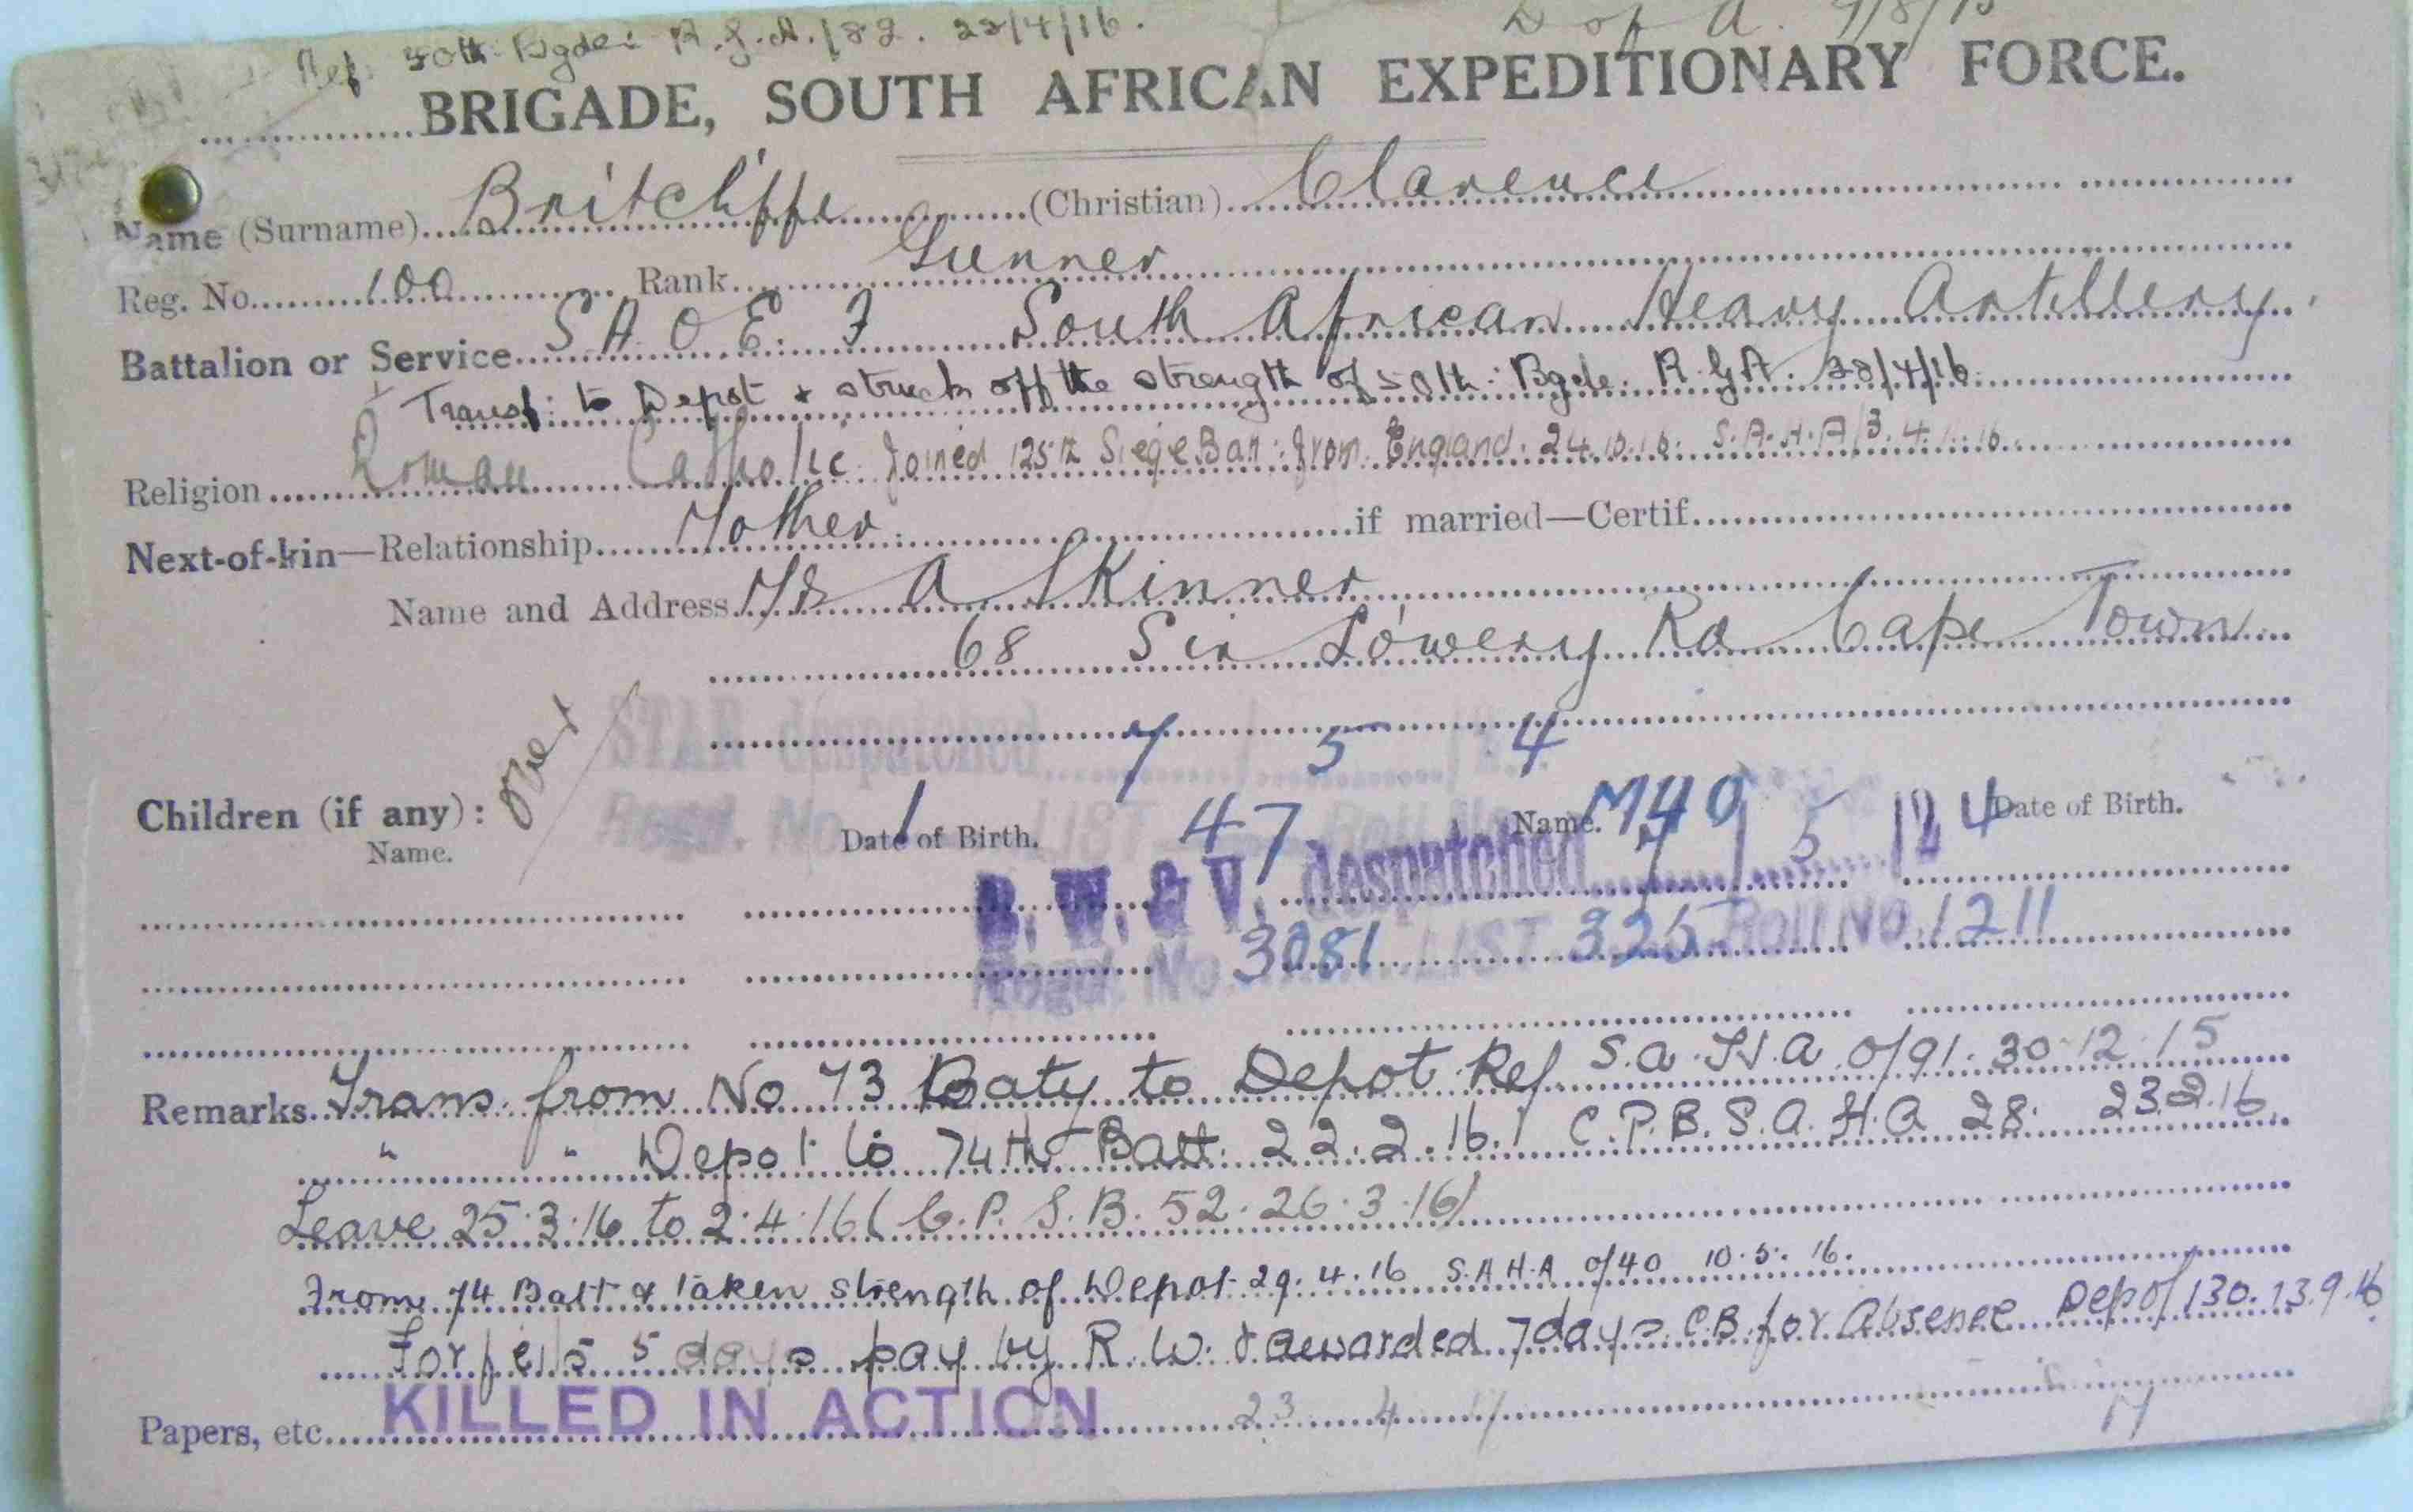 Ref. 50th Bgde: R.G.A./82. 22/4/16.
D of A. 9/8/15
BRIGADE, SOUTH AFRICAN EXPEDITIONARY FORCE.
Name (Surname) Britcliffe (Christian) Clarence
Reg. No. 100 Rank Gunner
Battalion or Service S A O E F South African Heavy Artillery.
Transf: to Depot & struck off the strength of 50th: Bgde. R.G.A. 28/4/16
Religion Roman Catholic Joined 125th Siege Batt: from England. 24.10.16. S.A.H.A/3.4.11.16
Next-of-kin—Relationship Mother if married—Certif.
Name and Address Mrs A Skinner
68 Sir Lowery Rd Cape Town
over
STAR despatched 7/5/24
Children (if any): Regd. No. 1 LIST 47 Roll No. M40
Name. Date of Birth. Name. Date of Birth.
B. W. & V. despatched 7/5/24
Regd. No. 3081 LIST 325 Roll No. 1211
Remarks Trans from No 73 Baty to Depot Ref S.A.H.A o/91. 30.12.15
" " Depot to 74th Batt. 22.2.16. C.P.B.S.A.H.A 28. 23.2.16.
Leave 25.3.16 to 2.4.16 (C.P.S.B. 52. 26.3.16)
From 74 Batt & taken strength of Depot 29.4.16 S.A.H.A o/40 10.5.16.
Forfeits 5 days pay by R.W. & awarded 7 days C.B. for Absence Depot/130. 13.9.16
Papers, etc. KILLED IN ACTION 23 4 17